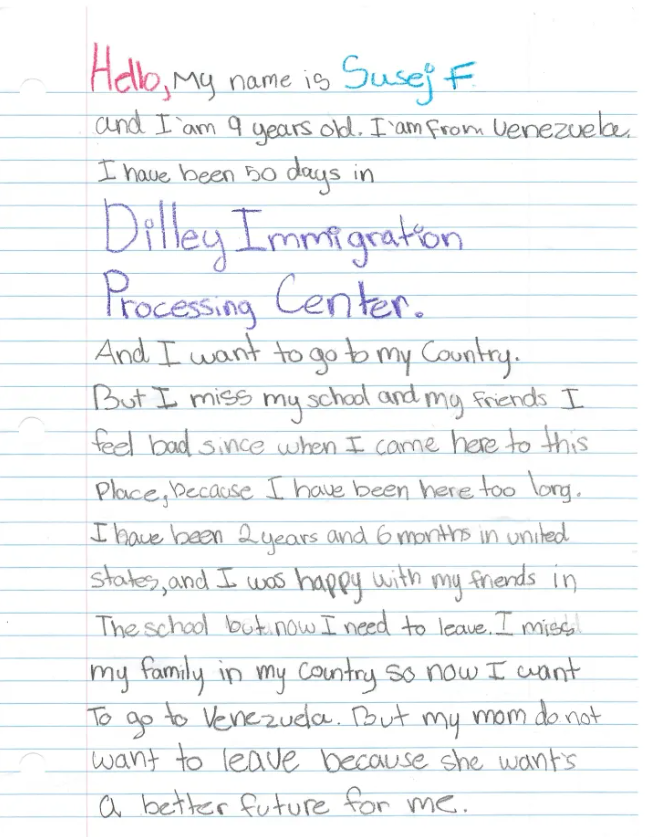 Hello, My name is Susej F
and I'am 9 years old. I'am from Venezuela.
I have been 50 days in
Dilley Immigration
Processing Center.
And I want to go to my Country.
But I miss my school and my friends I
feel bad since when I came here to this
Place, because I have been here too long.
I have been 2 years and 6 months in united
states, and I was happy with my friends in
The school but now I need to leave. I miss
my family in my country so now I want
To go to Venezuela. But my mom do not
want to leave because she want's
a better future for me.